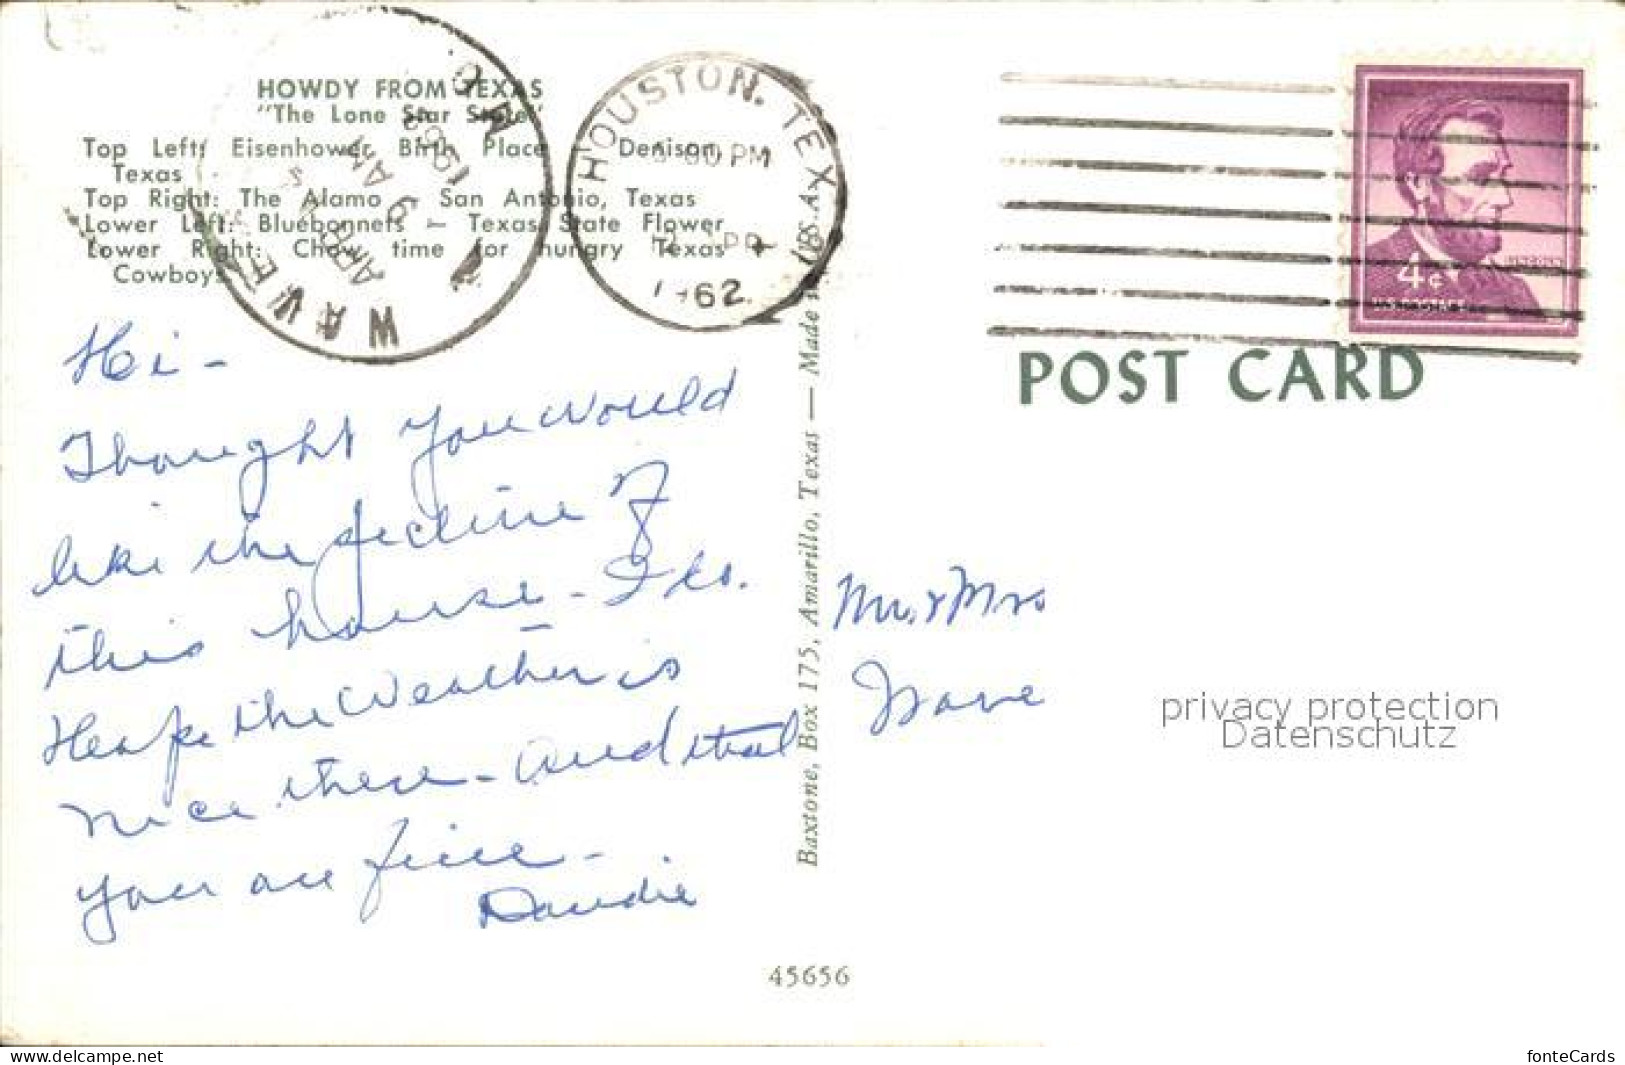 HOWDY FROM TEXAS
"The Lone Star State"
Top Left: Eisenhower Birth Place Denison,
Texas
Top Right: The Alamo - San Antonio, Texas
Lower Left: Bluebonnets - Texas State Flower
Lower Right: Chow time for hungry Texas
Cowboys
HOUSTON, TEXAS
PM
1962
WAV
APR
9
AM
MO.
4¢
POST CARD
Hi -
Thought you would
like the picture of
this house - Ike's.
Hope the Weather is
nice there - and that
you are fine -
Mr. & Mrs
Baxtone, Box 175, Amarillo, Texas — Made
privacy protection
Datenschutz
45656
www.delcampe.net
fonteCards